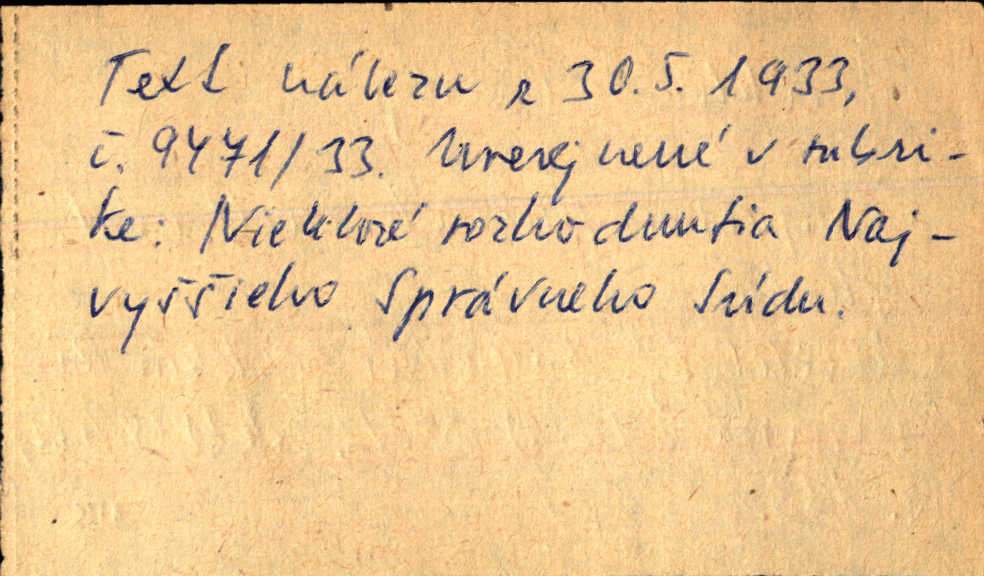 Text nálezu z 30.5.1933,
č. 9471/33. Uverejnené v rubri-
ke: Niektoré rozhodnutia Naj-
vyššieho Správneho Súdu.